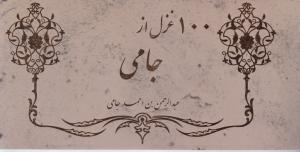 ۱۰۰ غزل از
جامی
عبدالرحمن بن احمد جامی